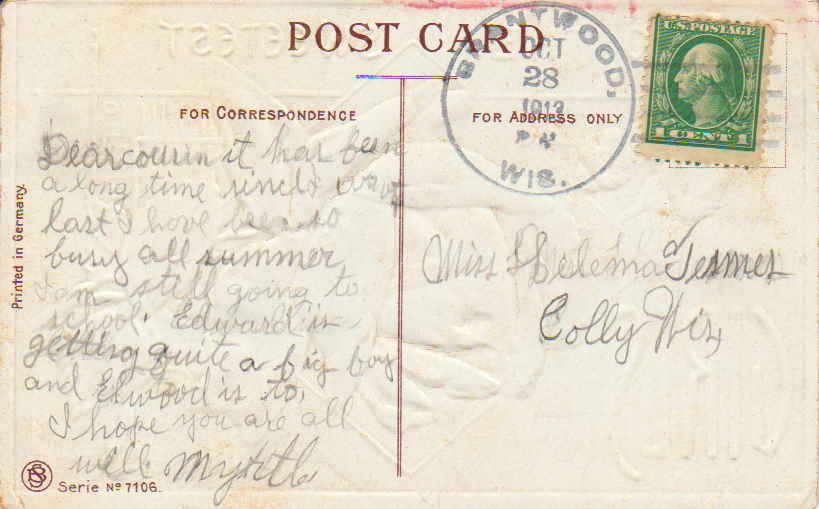 POST CARD
FOR CORRESPONDENCE
FOR ADDRESS ONLY
BRENTWOOD,
OCT
28
1913
WIS.
U.S. POSTAGE
1 CENTS 1
Dear cousin it has been
a long time since I
last I have been so
busy all summer
I am still going to
school. Edward is
getting quite a big boy
and Elwood is to.
I hope you are all
well Myrtle
Miss Helema
Colly Wis
Printed in Germany.
Serie No 7106.